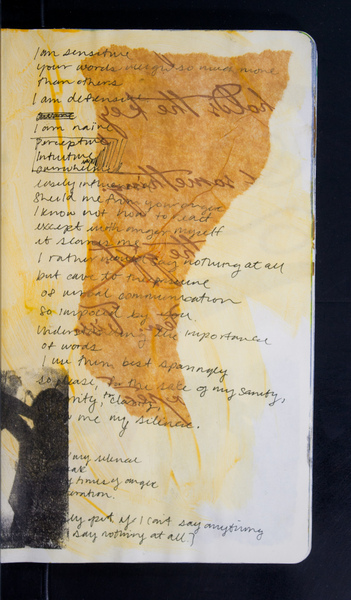 I am sensitive
your words weigh so much more
than others
I am defensive
I am naive
perceptive
Intuitive
overwhelmed
easily
Shield me from your anger
I know not how to react
except with anger myself
it scares me
I rather say nothing at all
but cave to the pressure
of verbal communication
so imposed by you.
Understanding the importance
of words
I use them best sparingly
so please, for the sake of my sanity,
clarity,
me my silence.
my silence
times of anger
if I can't say anything
say nothing at all.]
holds the key
something
the